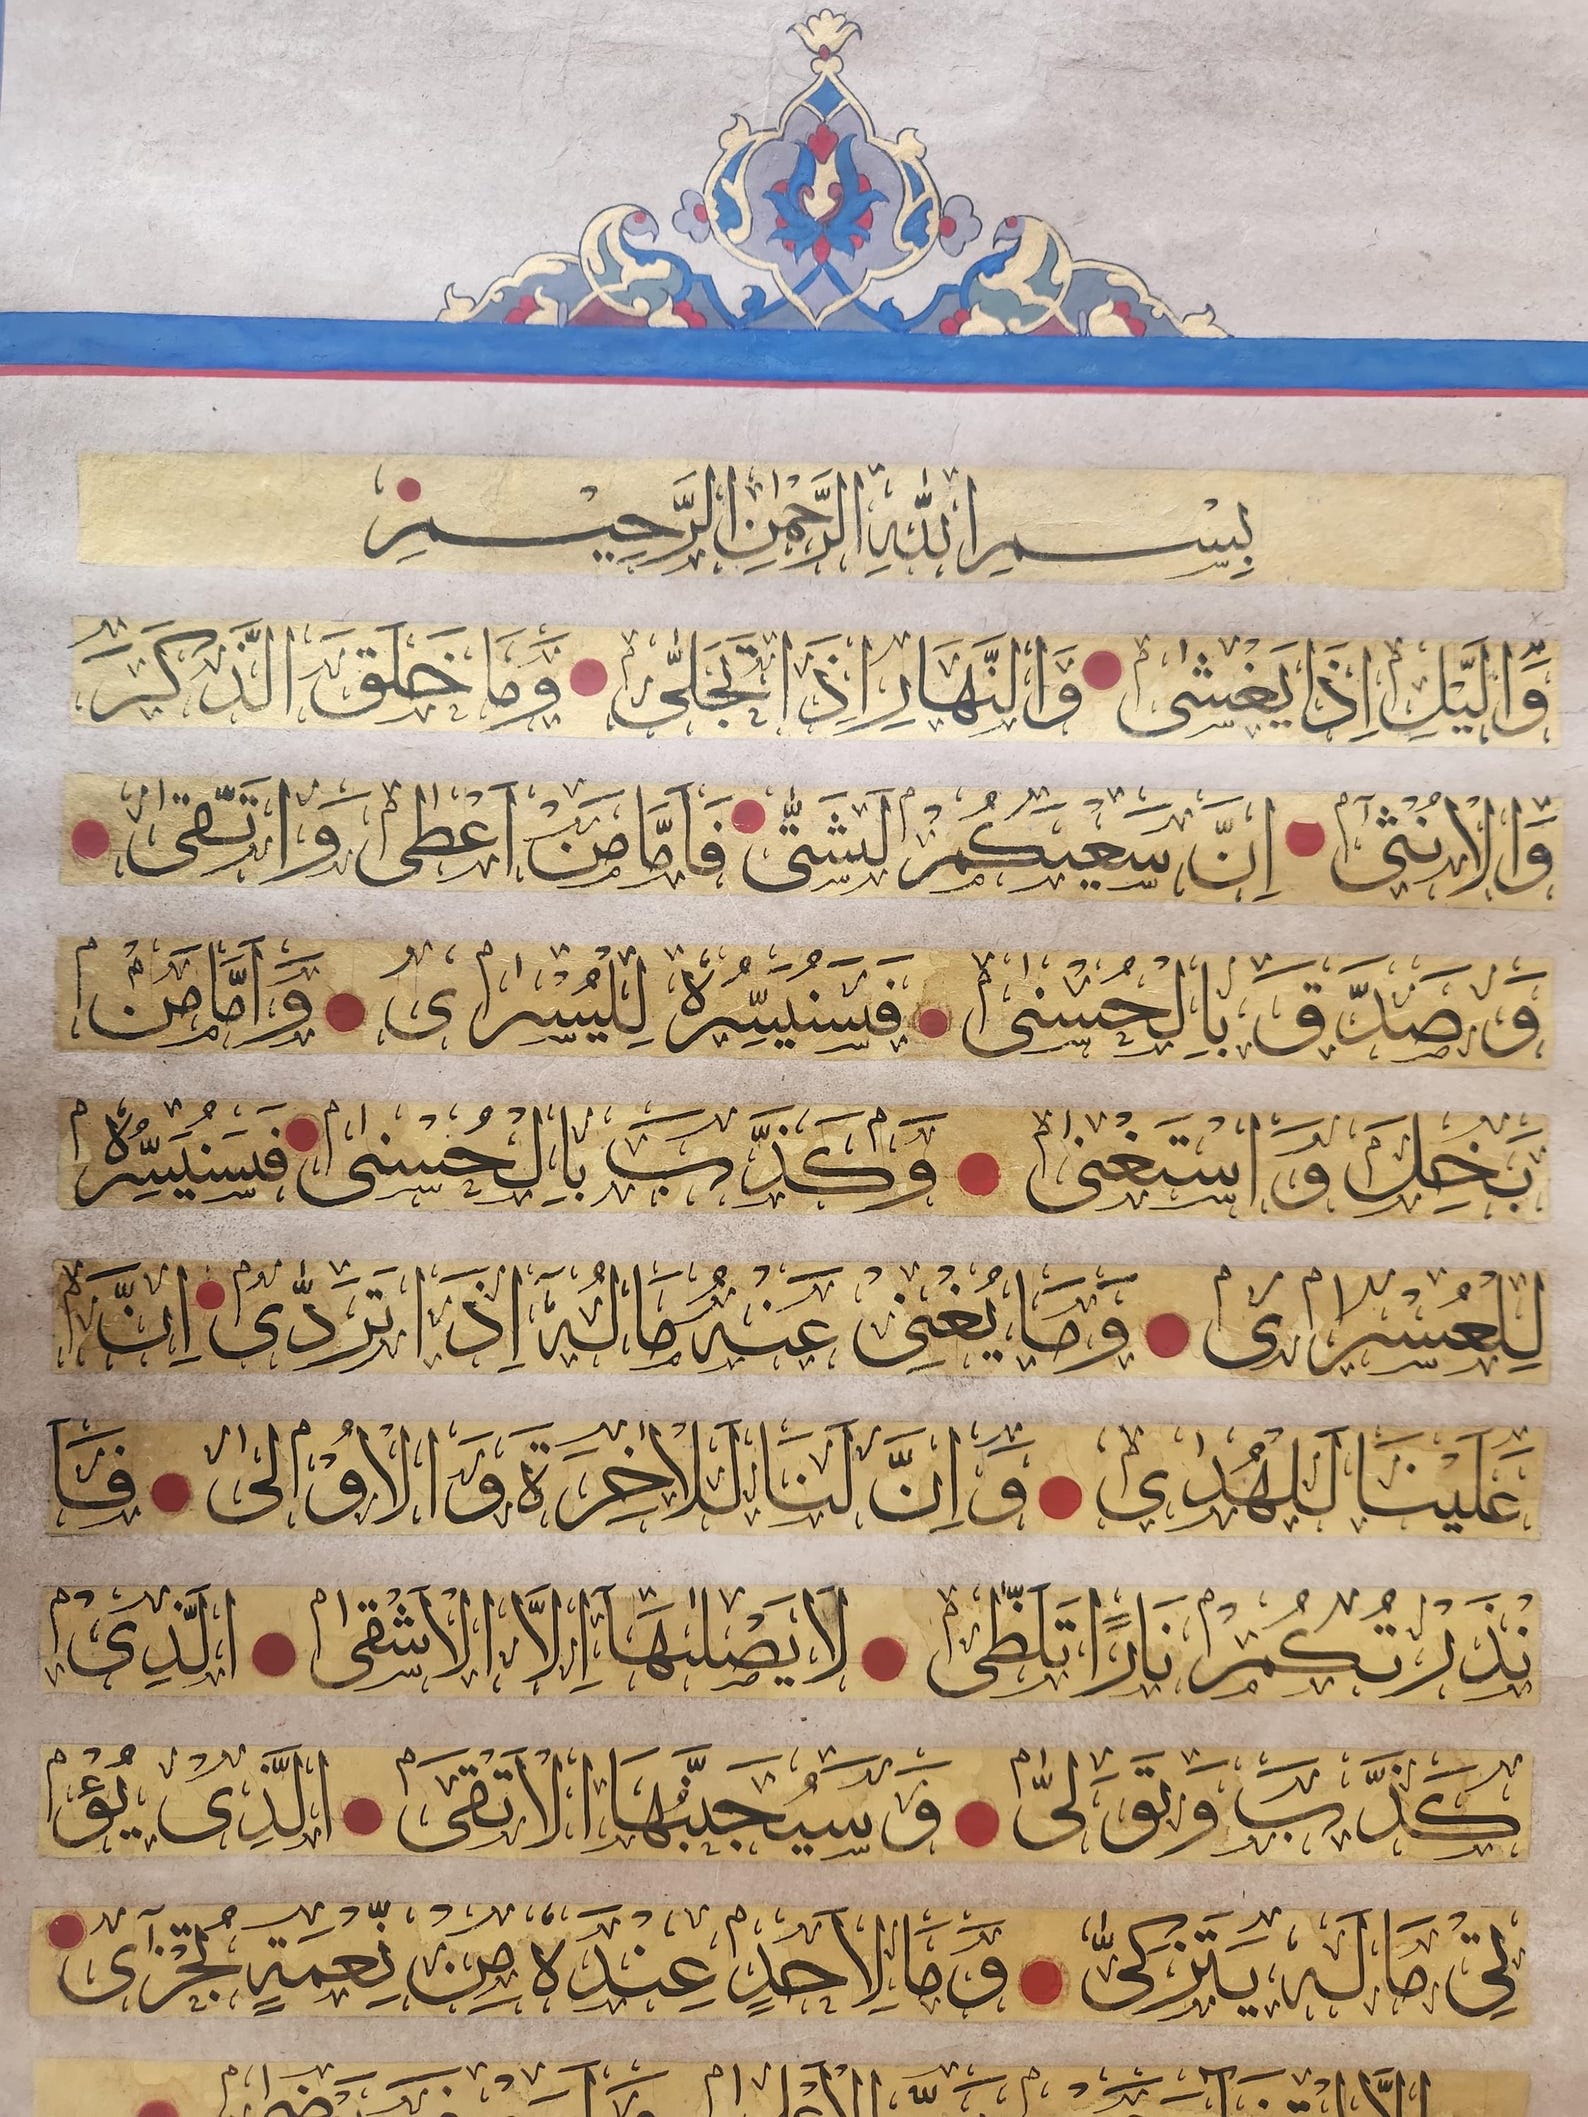 بِسْمِ اللّٰهِ الرَّحْمٰنِ الرَّحِيْمِ
وَالَّيْلِ اِذَا يَغْشٰى وَالنَّهَارِ اِذَا تَجَلّٰى وَمَا خَلَقَ الذَّكَرَ
وَالْاُنْثٰى اِنَّ سَعْيَكُمْ لَشَتّٰى فَاَمَّا مَنْ اَعْطٰى وَاتَّقٰى
وَصَدَّقَ بِالْحُسْنٰى فَسَنُيَسِّرُهٗ لِلْيُسْرٰى وَاَمَّا مَنْ
بَخِلَ وَاسْتَغْنٰى وَكَذَّبَ بِالْحُسْنٰى فَسَنُيَسِّرُهٗ
لِلْعُسْرٰى وَمَا يُغْنِىْ عَنْهُ مَالُهٗٓ اِذَا تَرَدّٰى اِنَّ
عَلَيْنَا لَلْهُدٰى وَاِنَّ لَنَا لَلْاٰخِرَةَ وَالْاُوْلٰى فَاَ
نْذَرْتُكُمْ نَارًا تَلَظّٰى لَا يَصْلٰىهَآ اِلَّا الْاَشْقَى الَّذِىْ
كَذَّبَ وَتَوَلّٰى وَسَيُجَنَّبُهَا الْاَتْقَى الَّذِىْ يُؤْ
تِىْ مَالَهٗ يَتَزَكّٰى وَمَا لِاَحَدٍ عِنْدَهٗ مِنْ نِّعْمَةٍ تُجْزٰٓى